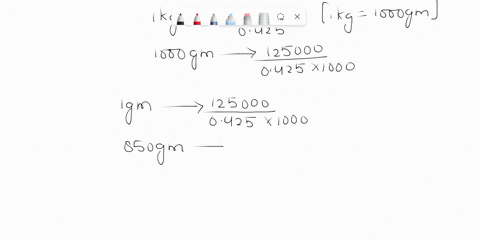 1kg 0.425 [1kg = 1000gm]
1000gm → 125000 / 0.425 × 1000
1gm → 125000 / 0.425 × 1000
850gm —